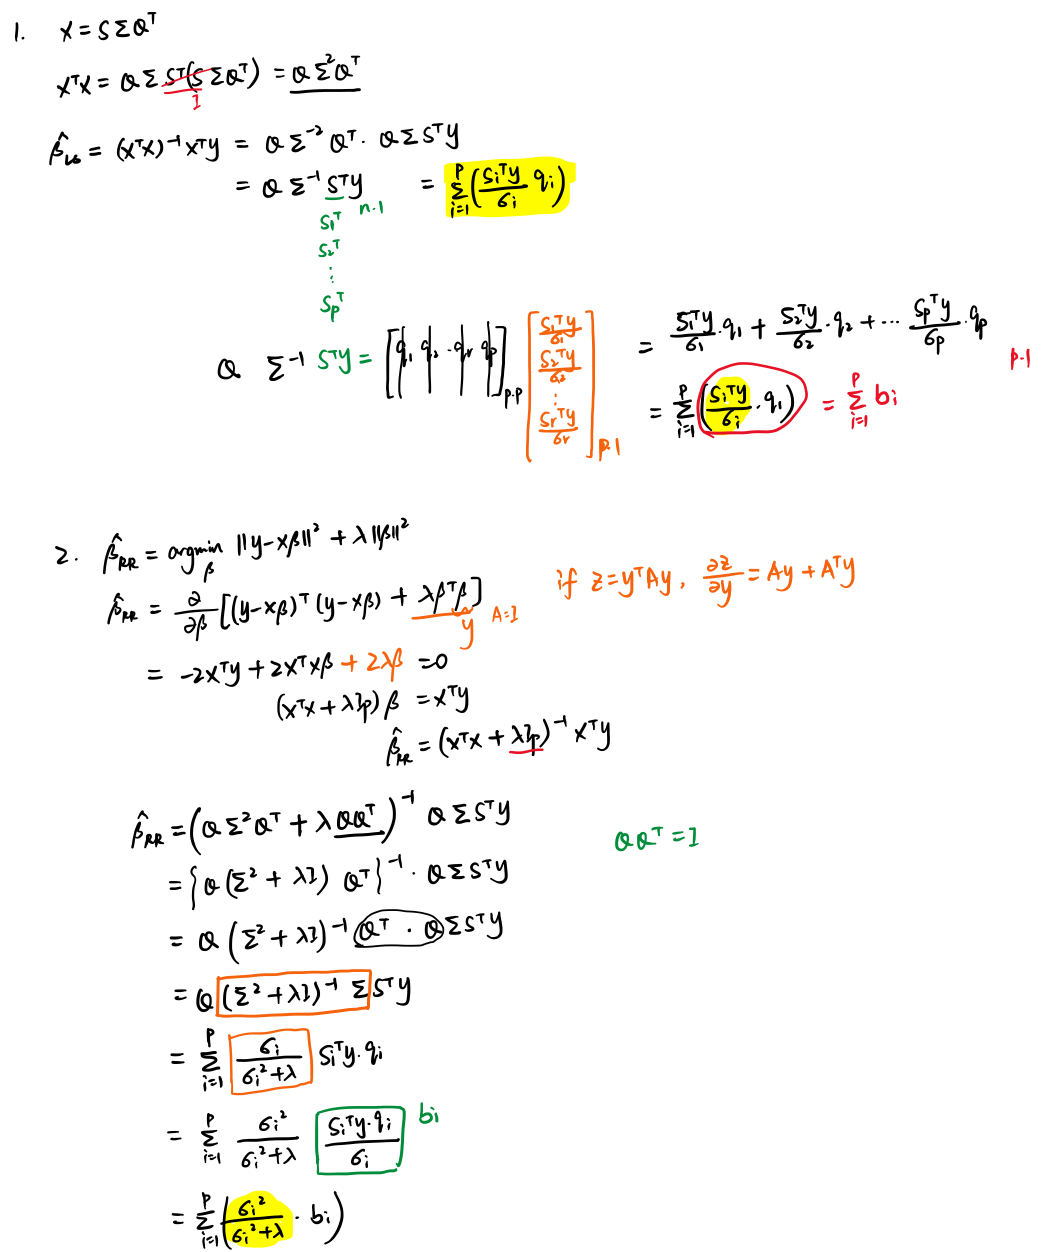 1. X = SΣQᵀ
XᵀX = QΣSᵀ(SΣQᵀ) = QΣ²Qᵀ
I
β̂ₗₛ = (XᵀX)⁻¹Xᵀy = QΣ⁻²Qᵀ · QΣSᵀy
= QΣ⁻¹Sᵀy = Σᵢ₌₁ᵖ (sᵢᵀy/σᵢ qᵢ)
n·1
s₁ᵀ
s₂ᵀ
⋮
sₚᵀ
Q Σ⁻¹ Sᵀy = [q₁ q₂ · qᵣ qₚ]ₚ.ₚ [s₁ᵀy/σ₁ s₂ᵀy/σ₂ ⋮ sᵣᵀy/σᵣ]ₚ.₁ = s₁ᵀy/σ₁ · q₁ + s₂ᵀy/σ₂ · q₂ + ⋯ sₚᵀy/σₚ · qₚ
p·1
= Σᵢ₌₁ᵖ (sᵢᵀy/σᵢ · qᵢ) = Σᵢ₌₁ᵖ bᵢ
2. β̂_RR = argmin_β ||y-Xβ||² + λ||β||²
β̂_RR = ∂/∂β [(y-Xβ)ᵀ(y-Xβ) + λβᵀβ] if z=yᵀAy, ∂z/∂y = Ay + Aᵀy
y A=I
= -2Xᵀy + 2XᵀXβ + 2λβ = 0
(XᵀX + λIp)β = Xᵀy
β̂_RR = (XᵀX + λIp)⁻¹Xᵀy
β̂_RR = (QΣ²Qᵀ + λQQᵀ)⁻¹ QΣSᵀy QQᵀ = I
= {Q(Σ² + λI)Qᵀ}⁻¹ · QΣSᵀy
= Q(Σ² + λI)⁻¹ Qᵀ · QΣSᵀy
= Q(Σ² + λI)⁻¹ΣSᵀy
= Σᵢ₌₁ᵖ σᵢ/(σᵢ²+λ) sᵢᵀy · qᵢ
= Σᵢ₌₁ᵖ σᵢ²/(σᵢ²+λ) sᵢᵀy·qᵢ/σᵢ bᵢ
= Σᵢ₌₁ᵖ (σᵢ²/(σᵢ²+λ) · bᵢ)